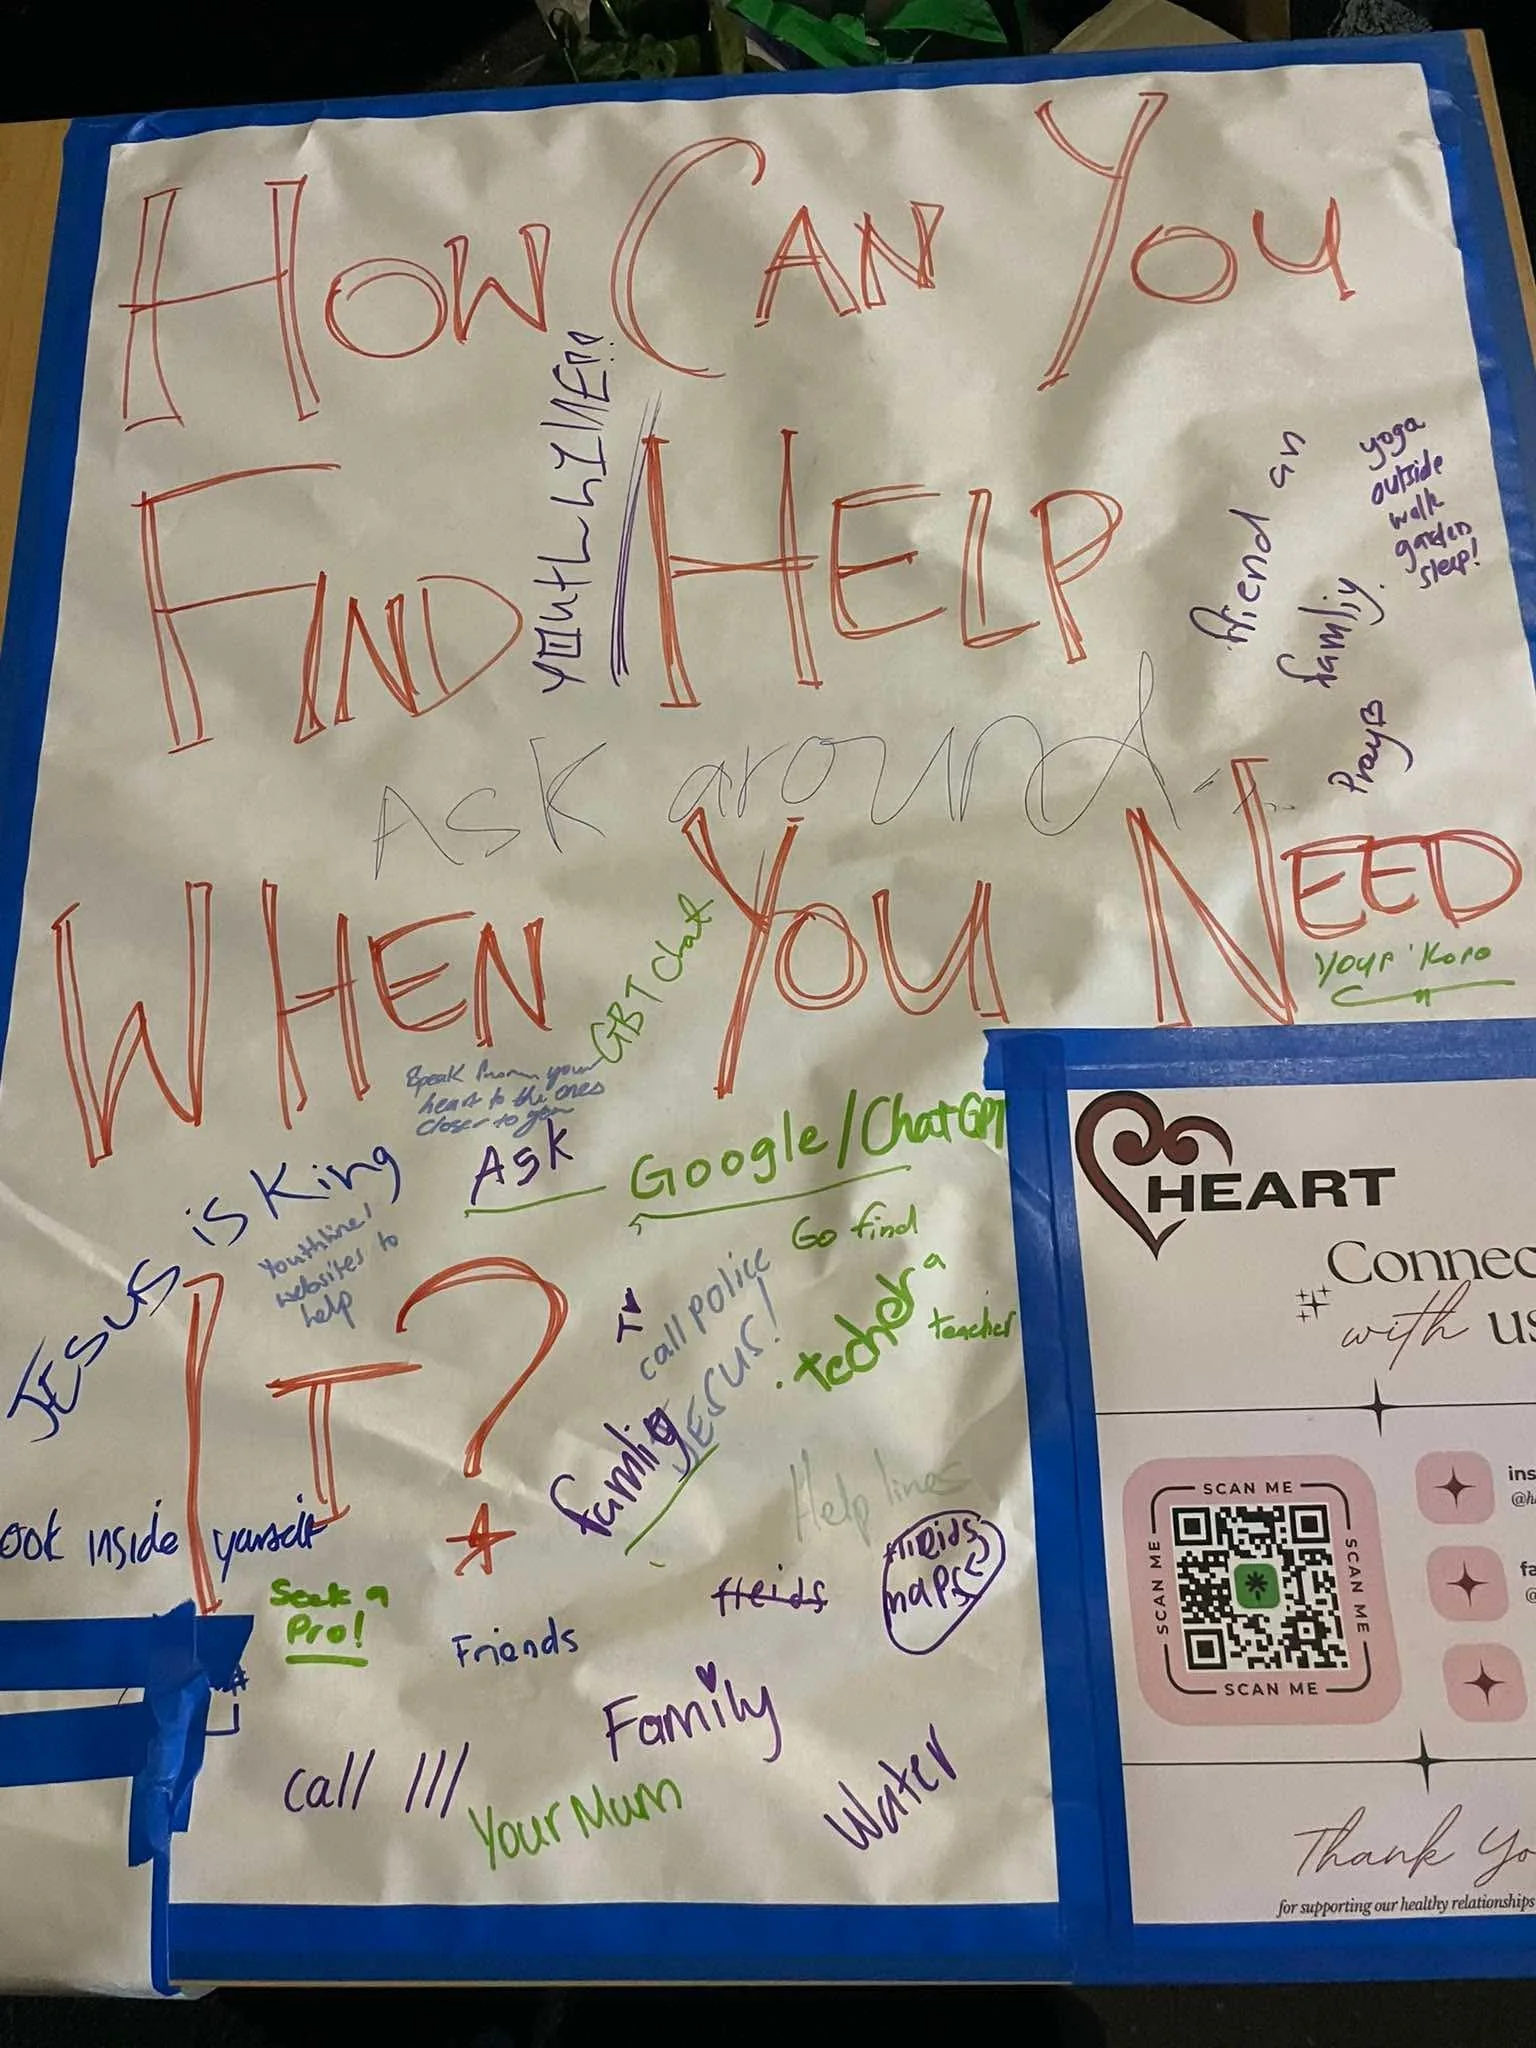 How Can You
Youthline!!
Find Help
friend an
family.
Pray
yoga
outside
walk
garden
sleep!
Ask around
When You Need
Your 'Koro
GBT Chat
Speak from your
heart to the ones
closer to you
Ask
Google/ChatGPT
Jesus is King
Youthline!
websites to
help
It?
Go find
a
teacher
TV
call police
JESUS!
techer
family
Help lines
ook inside yourself
Seek a
Pro!
Friends
naps
Family
call 111
Your Mum
Water
HEART
Connec
with us
SCAN ME
SCAN ME
SCAN ME
SCAN ME
ins
@h
fa
@
Thank Yo
for supporting our healthy relationships